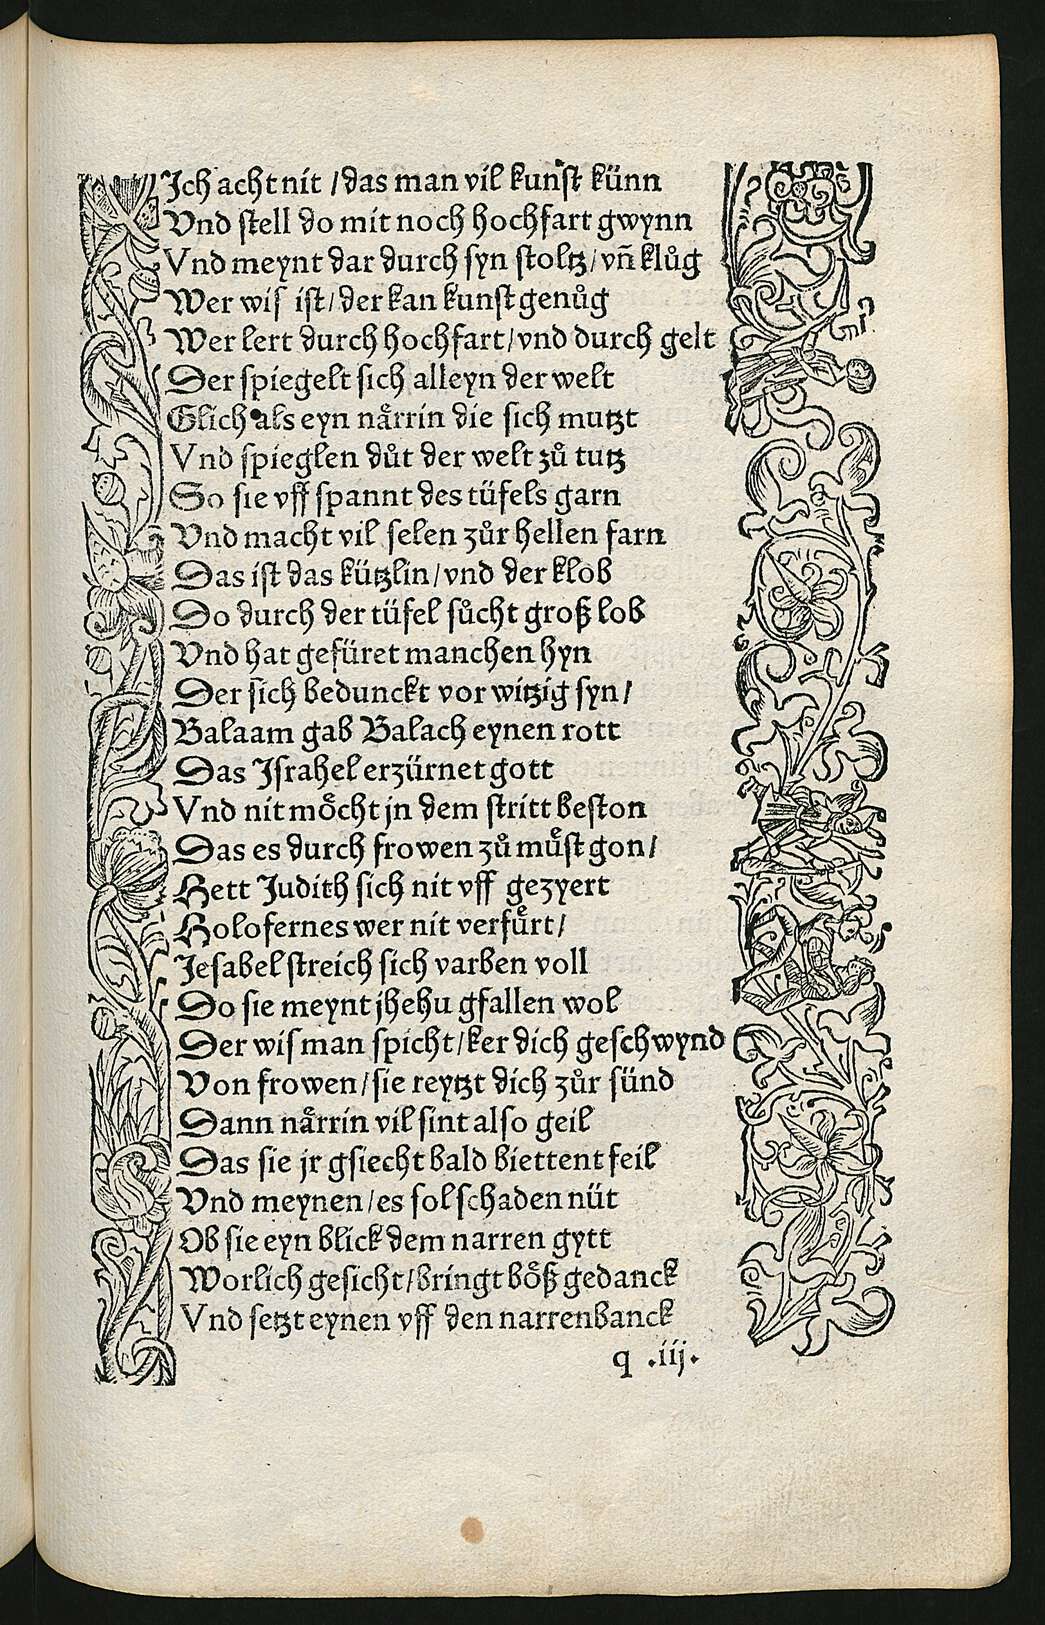 Ich acht nit / das man vil kunst künn
Vnd stell do mit noch hochfart gwynn
Vnd meynt dar durch syn stoltz / vñ klůg
Wer wis ist / der kan kunst genůg
Wer lert durch hochfart / vnd durch gelt
Der spiegelt sich alleyn der welt
Glich als eyn nåͤrrin die sich mutzt
Vnd spieglen důt der welt zů tutz
So sie vff spannt des tüfels garn
Vnd macht vil selen zůr hellen farn
Das ist das kützlin / vnd der klob
Do durch der tüfel sůcht groß lob
Vnd hat gefüret manchen hyn
Der sich bedunckt vor witzig syn /
Balaam gab Balach eynen rott
Das Israhel erzürnet gott
Vnd nit moͤcht jn dem stritt beston
Das es durch frowen zů muͤst gon /
Hett Judith sich nit vff gezyert
Holofernes wer nit verfuͤrt /
Jesabel streich sich varben voll
Do sie meynt jhehu gfallen wol
Der wis man spicht / ker dich geschwynd
Von frowen / sie reytzt dich zůr sünd
Dann naͤrrin vil sint also geil
Das sie jr gsiecht bald biettent feil
Vnd meynen / es sol schaden nüt
Ob sie eyn blick dem narren gytt
Worlich gesicht / bringt boͤß gedanck
Vnd setzt eynen vff den narrenbanck
q .iij.